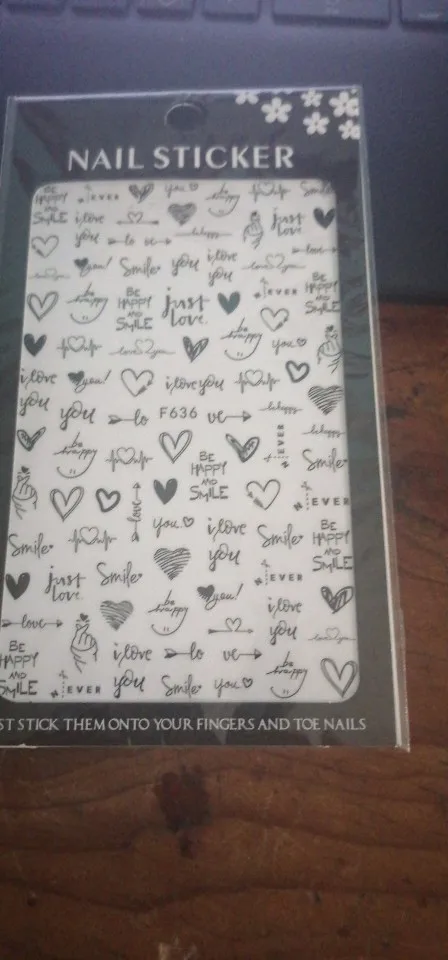 NAIL STICKER
BE HAPPY AND SMILE
EVER
you
be happy
Smile
i love you
just love
be happy
love
you!
Smile
you
i love you
love you
EVER
BE HAPPY AND SMILE
be happy
BE HAPPY AND SMILE
just love.
be happy
you
love you
i love you
you!
i love you
you
lo F636 ve
be happy
EVER
BE HAPPY AND SMILE
Smile
love
EVER
you
i love you
Smile
BE HAPPY AND SMILE
Smile
just love
Smile
EVER
you!
be happy
i love you
love
BE HAPPY AND SMILE
EVER
i love you
lo ve
Smile
you
be happy
ST STICK THEM ONTO YOUR FINGERS AND TOE NAILS